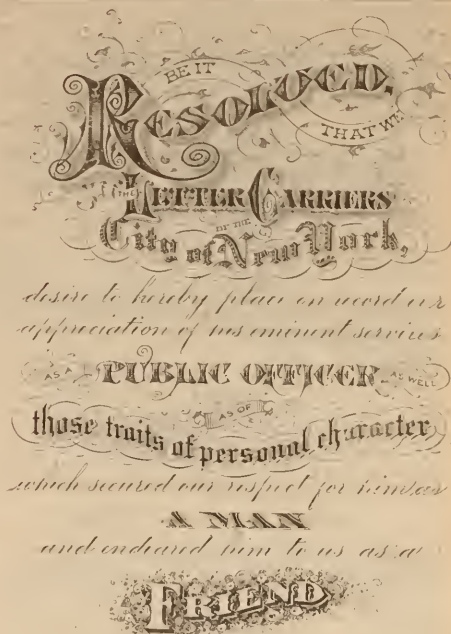 BE IT
RESOLVED,
THAT WE
the
LETTER CARRIERS
OF THE
City of New York,
desire to hereby place on record our
appreciation of his eminent services
AS A PUBLIC OFFICER AS WELL
AS OF
those traits of personal character
which secured our respect for him as
A MAN
and endeared him to us as a
FRIEND